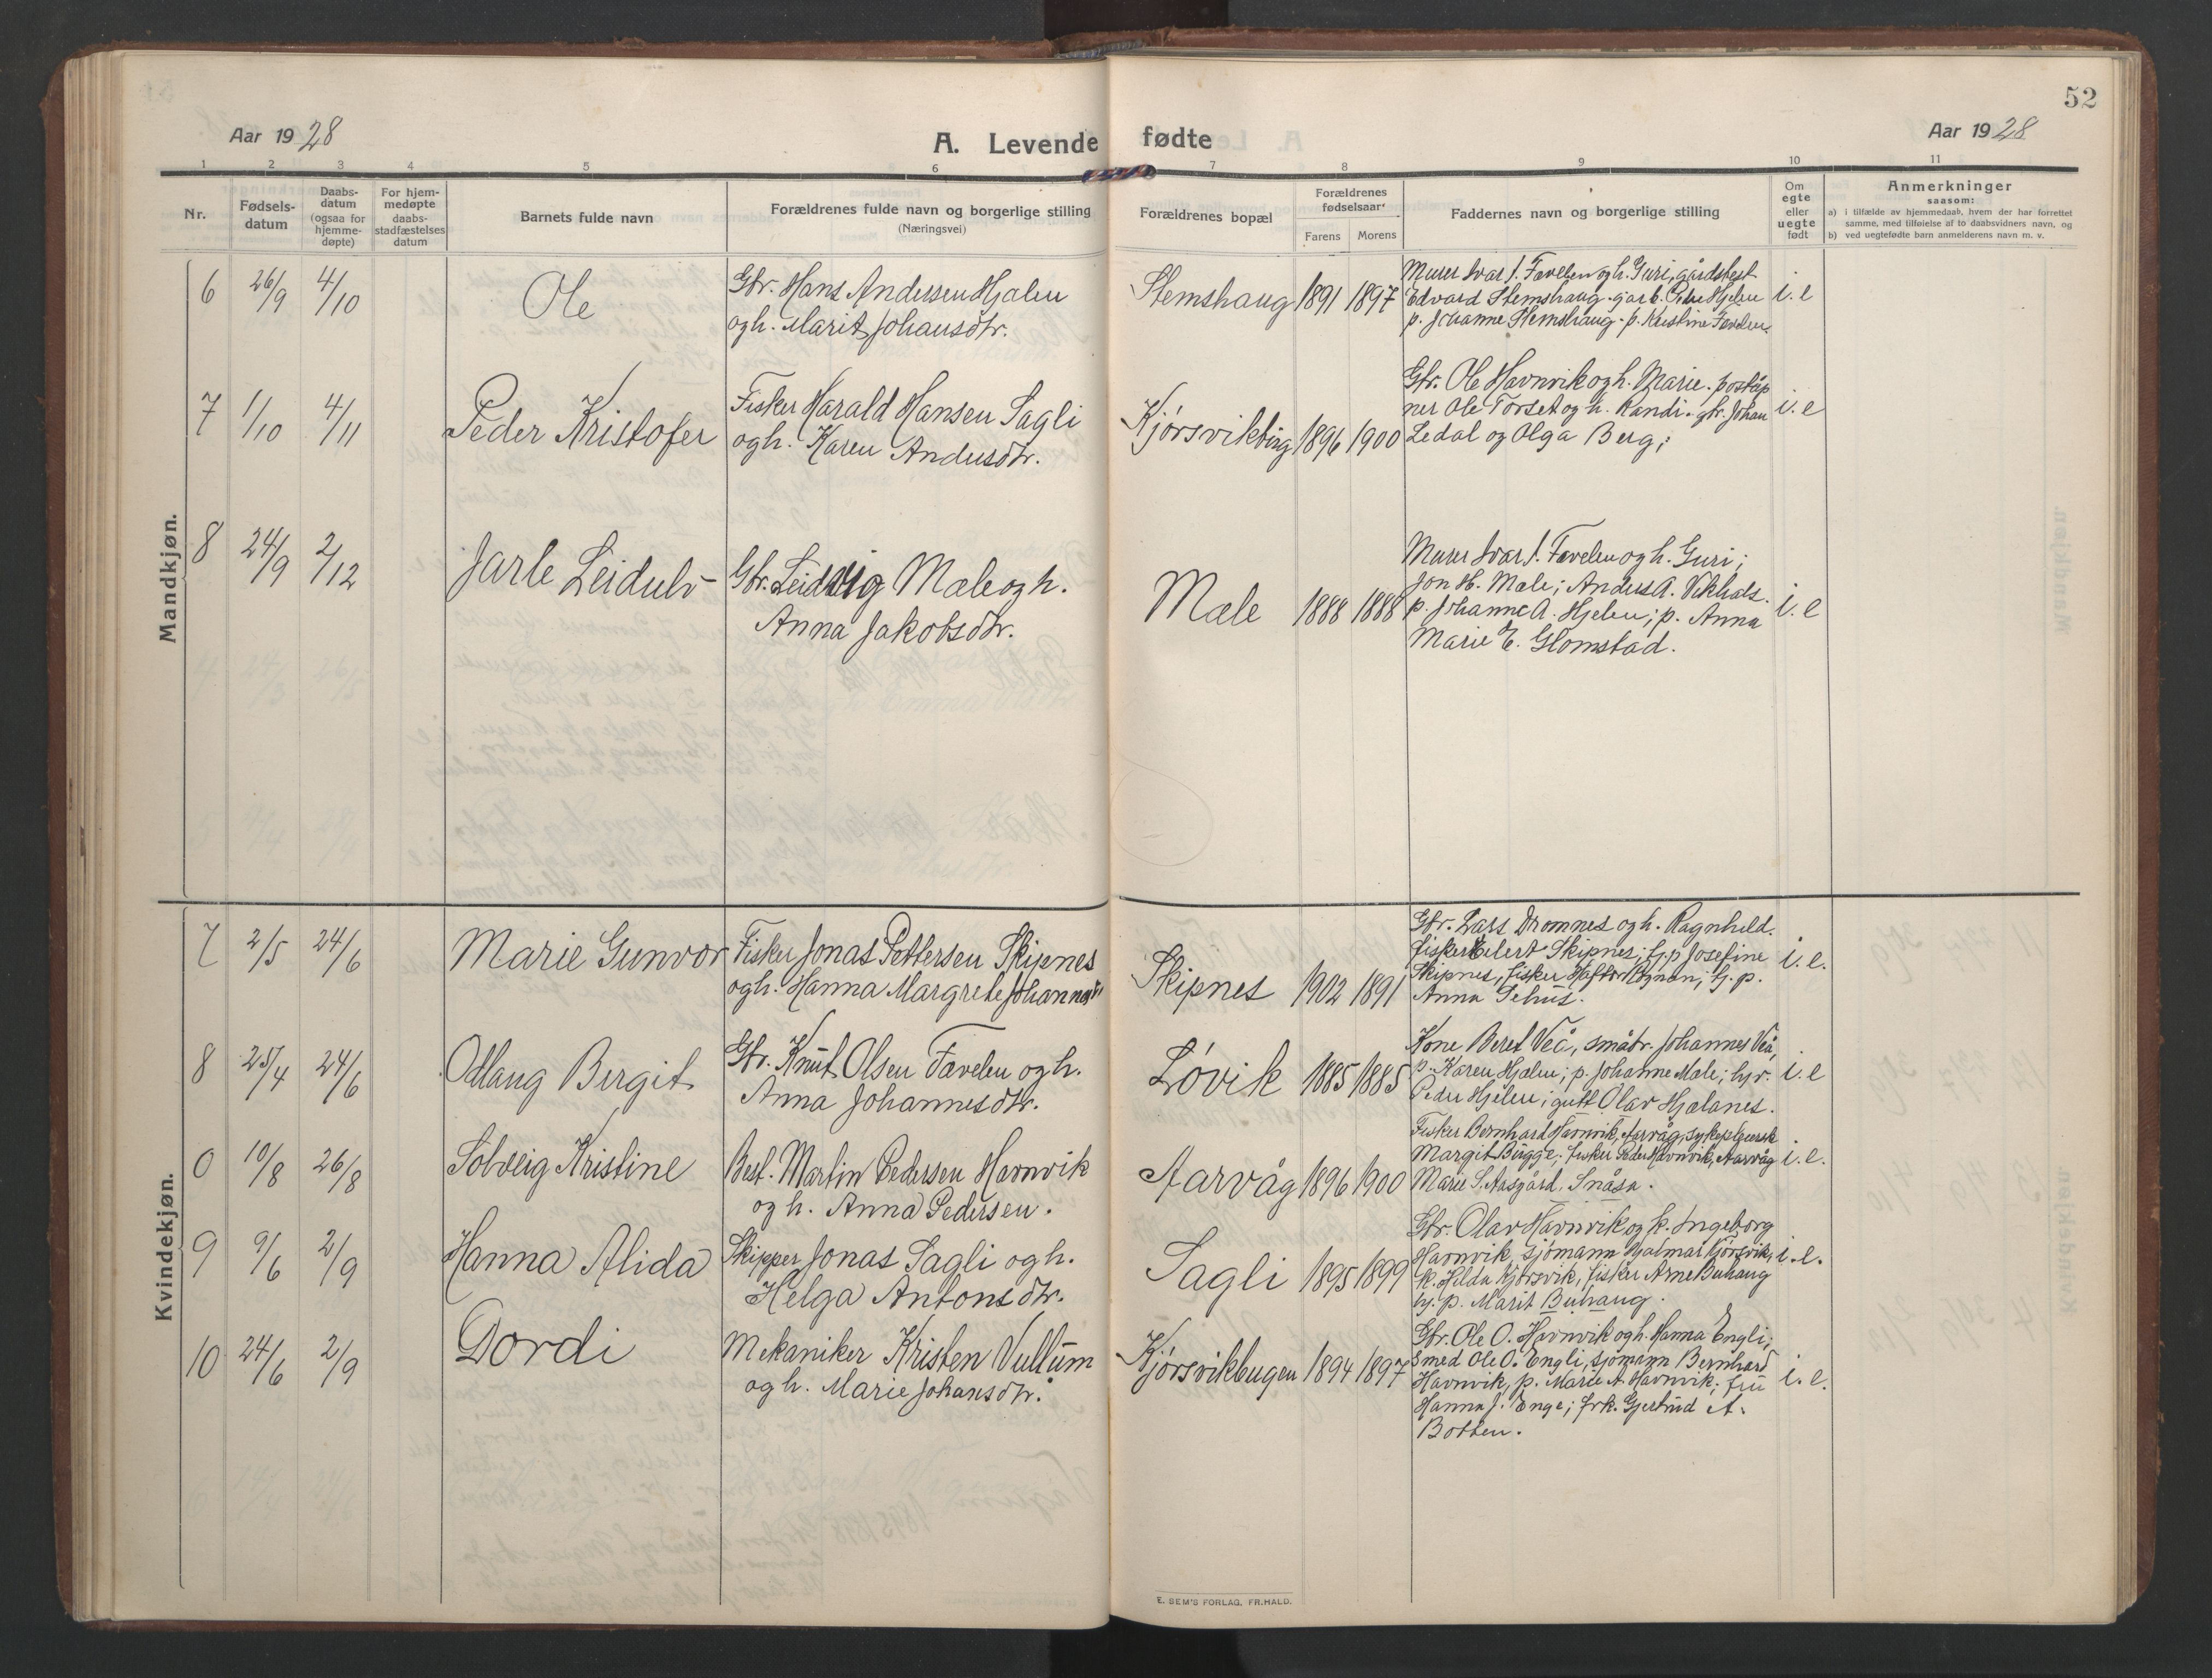 52
Aar 1928
A. Levende fødte
Aar 1928
1 2 3 4 5 6 7 8 9 10 11
Nr.
Fødsels-
datum
Daabs-
datum
(ogsaa for
hjemme-
døpte)
For hjem-
medøpte
daabs-
stadfæstelses
datum
Barnets fulde navn
Forældrenes fulde navn og borgerlige stilling
(Næringsvei)
Forældrenes bopæl
Forældrenes
fødselsaar
Farens Morens
Faddernes navn og borgerlige stilling
Om
egte
eller
uegte
født
Anmerkninger
saasom:
a) i tilfælde av hjemmedaab, hvem der har forrettet
samme, med tilføielse af to daabsvidners navn, og
b) ved uegtefødte barn anmelderens navn m. v.
Mandkjøn.
6 26/9 4/10 Ole
Gbr. Hans Andersen Hjalen
og h. Marit Johansdtr.
Stemshaug 1891 1897
Murer Ivar J. Fævelen og h. Guri, gårdsbest.
Edvard Stemshaug. garb. Peder Hjelen
p. Johanne Stemshaug. p. Kristine Fævelen.
i. e
7 1/10 4/11 Peder Kristofer
Fisker Harald Hansen Sagli
og h. Karen Andersdtr.
Kjørsvikbug 1896 1900
Gbr. Ole Havnvik og h. Marie. poståp
ner Ole Torset og h. Randi. gbr. Johan
Ledal og Olga Berg;
i. e
8 24/9 2/12 Jarle Leidulv
Gbr. Leidvig Mæle og h.
Anna Jakobsdtr.
Mæle 1888 1888
Murer Ivar J. Fævelen og h. Guri;
Jon H. Mæle; Anders A. Vikhals.
p. Johanne A. Hjelen; p. Anna
Marie E. Glomstad.
i. e
Kvindekjøn.
7 2/5 24/6 Marie Gunvor
Fisker Jonas Pettersen Skipnes
og h. Hanna Margrete Johannesdtr
Skipnes 1902 1891
Gbr. Lars Dromnes og h. Ragnhild.
fisker Eilert Skipnes; hj. p Josefine
Skipnes, fisker Haftor hj. p.
Anna
i. e.
8 25/4 24/6 Odlaug Bergit
Gbr. Knut Olsen Fævelen og h.
Anna Johannesdtr.
Løvik 1885 1885
Kone Beret Veå, småbr. Johannes Veå,
p. Karen Hjælen; p. Johanne Mæle; hjr.
Peder Hjelen; gutt Olav Hjælanes.
i. e
0 10/8 26/8 Solveig Kristine
Best. Martin Pedersen Havnvik
og h. Anna Pedersen.
Aarvåg 1896 1900
Fisker Bernhard Havnvik, Aarvåg, sykepleiersk
Margit Bugge; fisker Peder Havnvik, Aarvåg
Marie S. Aasgård, Snåsa.
i. e.
9 9/6 2/9 Hanna Alida
Skipper Jonas Sagli og h.
Helga Antonsdtr.
Sagli 1895 1899
Gbr. Olav Havnvik og k. Ingeborg
Havnvik, sjømann Hjalmar Kjørsvik,
k. Hilda Kjørsvik, fisker Arne Buhaug
hj. p. Marit Buhaug.
i. e.
10 24/6 2/9 Dordi
Mekaniker Kristen Vullum
og h. Marie Johansdtr.
Kjørsvikbugen 1894 1897
Gbr. Ole O. Havnvik og h. Hanna Engli;
smed Ole O. Engli, sjømann Bernhard
Havnvik, p. Marie A. Havnvik; fru
Hanna J. Enge; frk. Gjertrud A.
Botten.
i. e.
E. SEM'S FORLAG, FR.HALD.